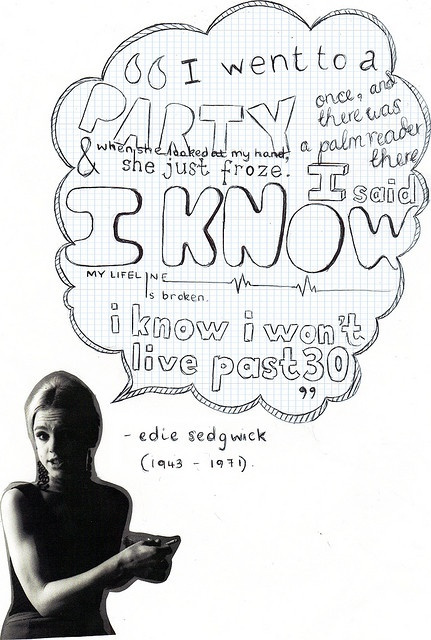 “ I went to a
PARTY
once, and
there was
a palmreader
there
& when she looked at my hand,
she just froze.
I said
I KNOW
MY LIFELINE
is broken.
i know i won't
live past 30
”
- edie sedgwick
(1943 - 1971).